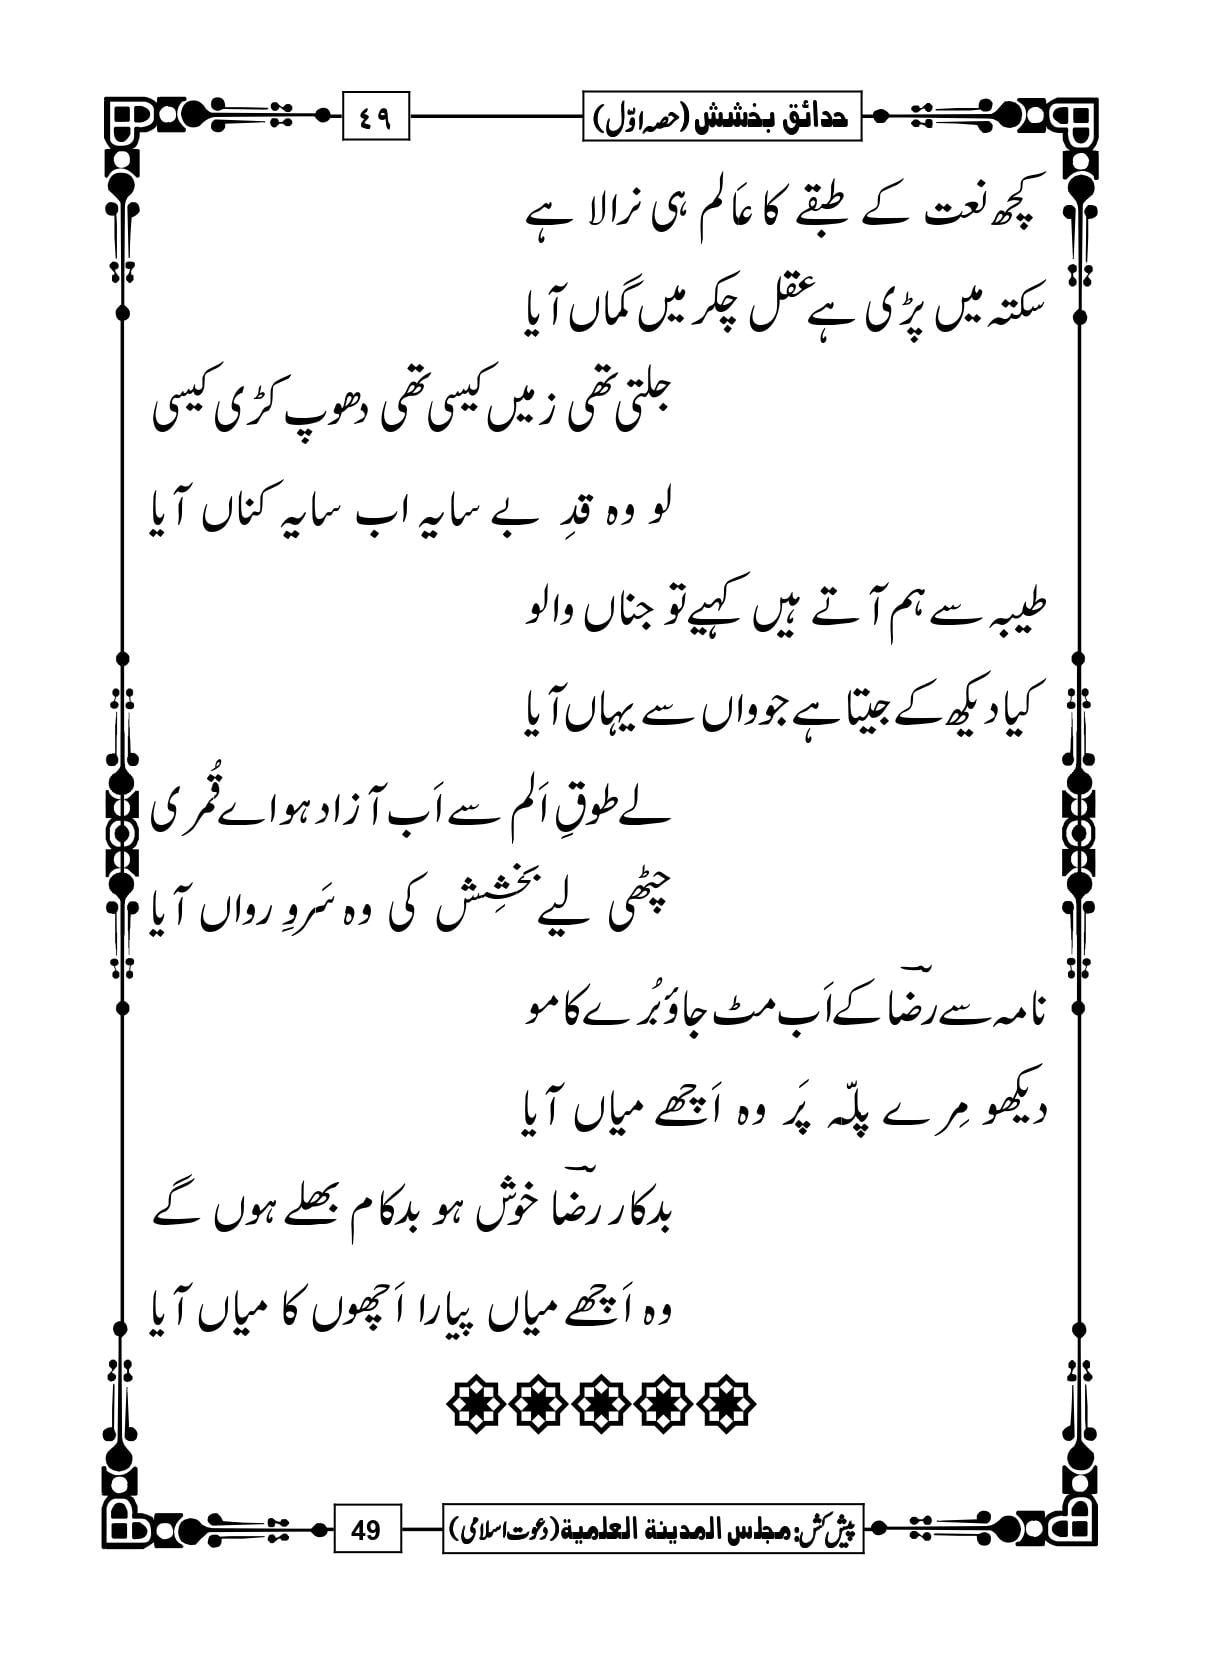 حدائق بخشش (حصہ اوّل)
٤٩
کچھ نعت کے طبقے کا عَالم ہی نرالا ہے
سکتہ میں پڑی ہے عقل چکر میں گماں آیا
جلتی تھی زمیں کیسی تھی دھوپ کڑی کیسی
لو وہ قدِ بے سایہ اب سایہ کناں آیا
طیبہ سے ہم آتے ہیں کہیے تو جناں والو
کیا دیکھ کے جیتا ہے جو واں سے یہاں آیا
لے طوقِ اَلم سے اَب آزاد ہو اے قُمری
چٹھی لیے بخشِش کی وہ سَروِ رواں آیا
نامہ سے رضؔا کے اَب مٹ جاؤ بُرے کامو
دیکھو مِرے پلّہ پَر وہ اَچھے میاں آیا
بدکار رضؔا خوش ہو بدکام بھلے ہوں گے
وہ اَچھے میاں پیارا اَچھوں کا میاں آیا
پیش کش: مجلس المدينة العلمية (دعوت اسلامی)
49